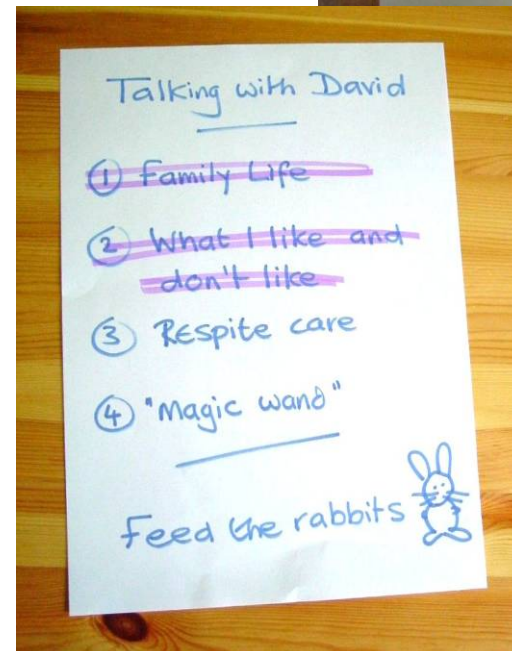 Talking with David
① Family Life
② What I like and
don't like
③ Respite care
④ "Magic wand"
Feed the rabbits